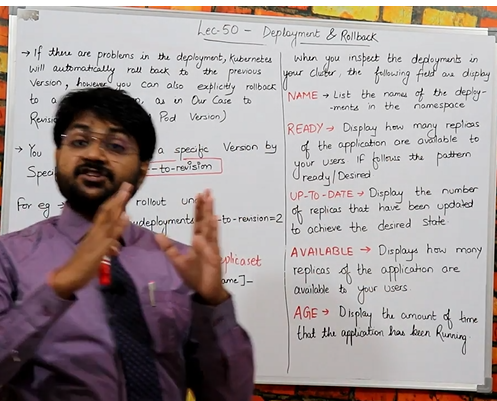 Lec-50 - Deployment & Rollback
→ If there are problems in the deployment, Kubernetes
will automatically roll back to the previous
Version, however you can also explicitly rollback
to a as in Our Case to
Revision Pod Version)
→ You a specific Version by
Speci -to-revision
For eg → rollout un
deployments -to-revision=2
replicaset
ame]-
When you inspect the deployments in
your cluster, the following field are display
NAME → List the names of the deploy-
-ments in the namespace
READY → Display how many replicas
of the application are available to
your users. If follows the pattern
ready/Desired
UP-TO-DATE → Display the number
of replicas that have been updated
to achieve the desired State.
AVAILABLE → Displays how many
replicas of the application are
available to your users
AGE → Display the amount of time
that the application has been Running